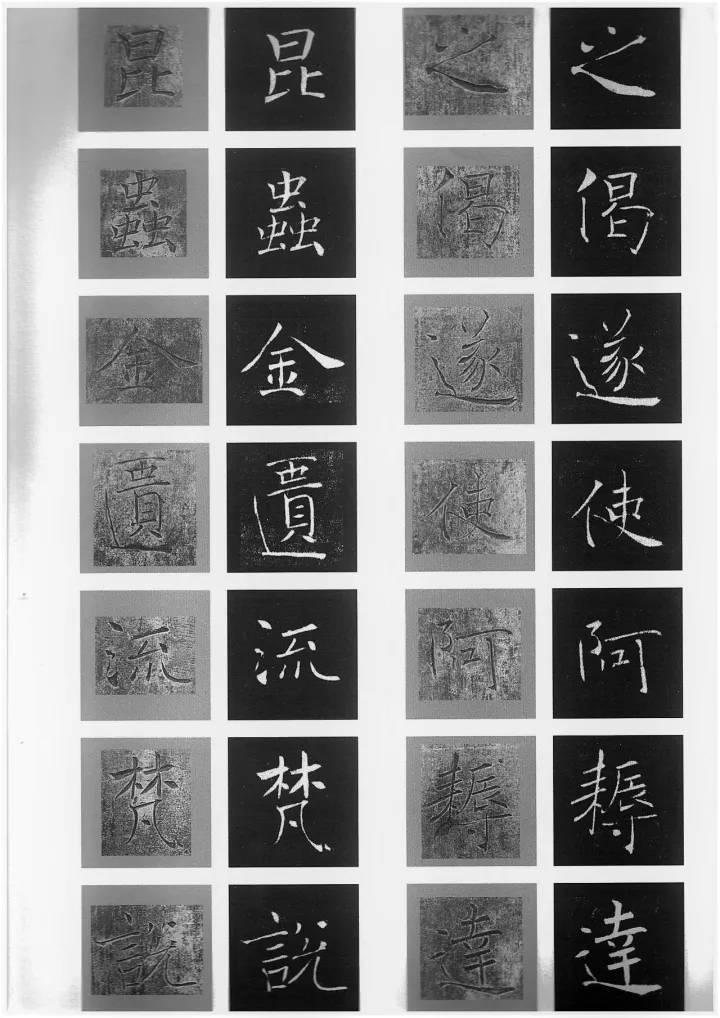 昆蟲金匱流梵說
昆蟲金匱流梵說
之偈遂使阿耨達
之偈遂使阿耨達